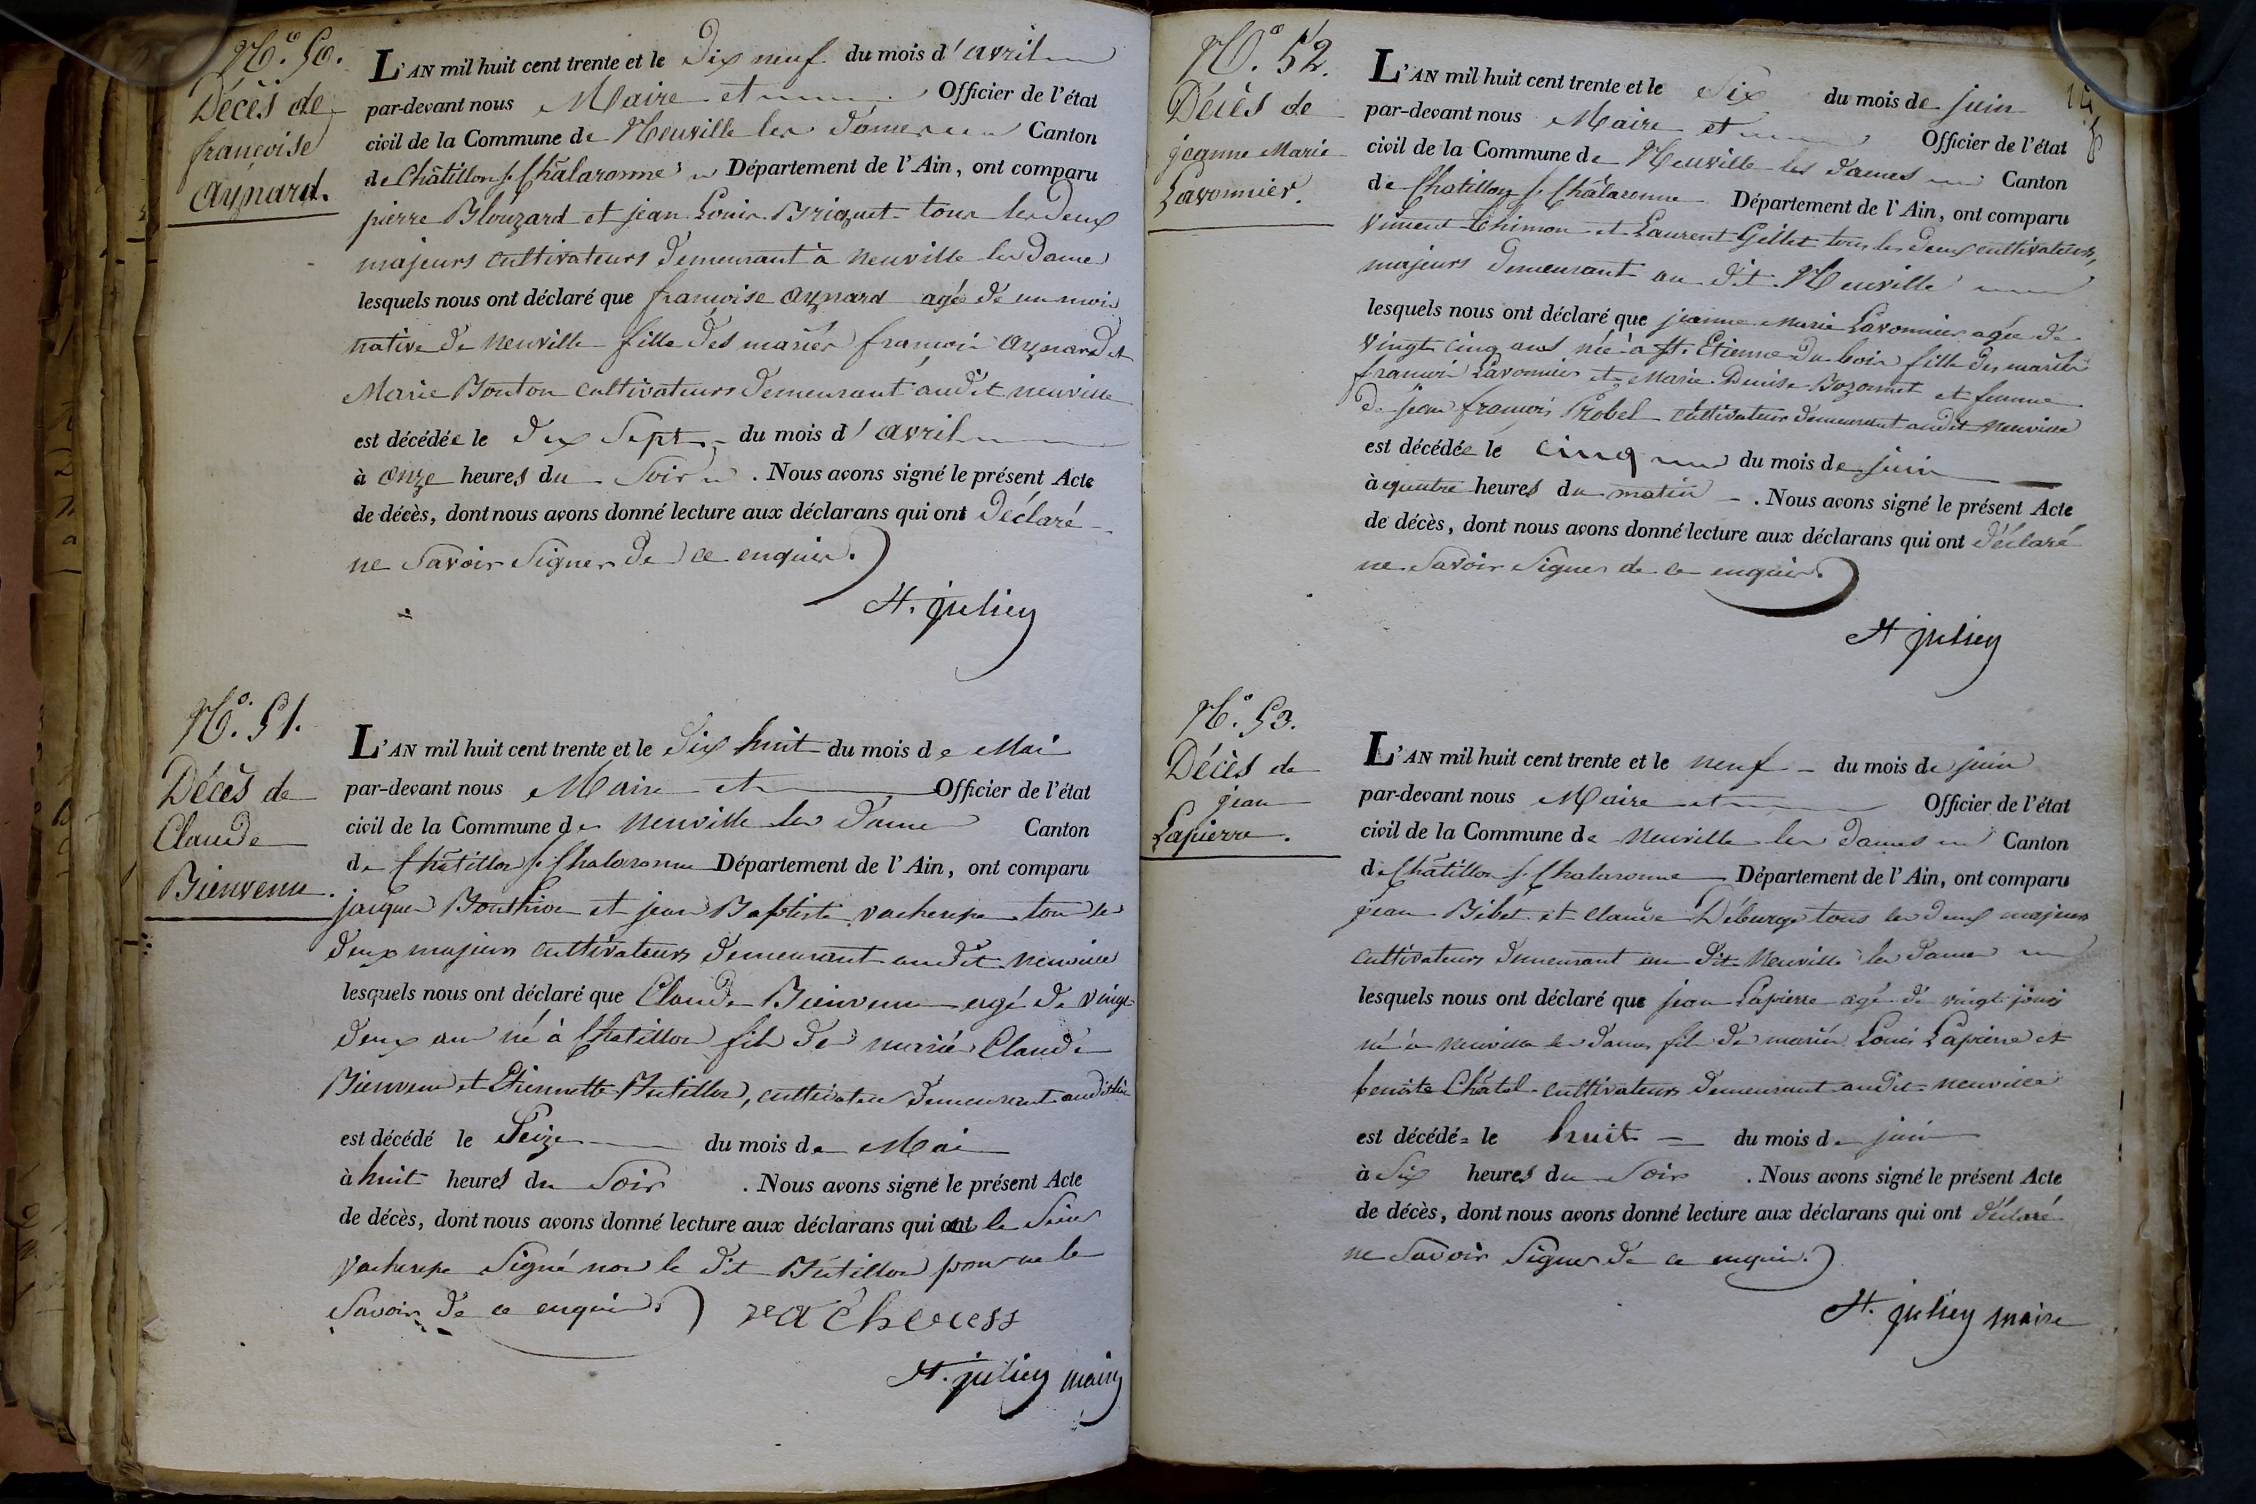 N.° 50.
Décès de
françoise
aynard.
L'AN mil huit cent trente et le dix neuf du mois d'avril
par-devant nous Maire et Officier de l'état
civil de la Commune de Neuville les dames Canton
de Châtillon s. Châlaronne Département de l'Ain, ont comparu
pierre Blouzard et jean Louis Briquet tous les deux
majeurs cultivateurs demeurant à neuville les dames
lesquels nous ont déclaré que françoise aynard agée de un mois
native de neuville fille des mariés françois aynard et
Marie Bouton cultivateurs demeurant audit neuville
est décédée le dix sept du mois d'avril
à onze heures du soir . Nous avons signé le présent Acte
de décès, dont nous avons donné lecture aux déclarans qui ont déclaré
ne savoir signer de ce enquis.
H. julien
N.° 51.
Décès de
Claude
Bienvenu.
L'AN mil huit cent trente et le dix huit du mois de Mai
par-devant nous Maire et Officier de l'état
civil de la Commune de neuville les dames Canton
de Châtillon s. Chalaronne Département de l'Ain, ont comparu
jacques et jean Baptiste tous les
deux majeurs cultivateurs demeurant audit neuville
lesquels nous ont déclaré que Claude Bienvenu agé de vingt
deux ans né à Chatillon fils de mariés Claude
Bienvenu et Etiennette Butillon, cultivateurs demeurant audit lieu
est décédé le seize du mois de Mai
à huit heures du soir . Nous avons signé le présent Acte
de décès, dont nous avons donné lecture aux déclarans qui ont le sieur
signé non le dit Butillon pour ne le
savoir de ce enquis.
H. julien maire
N.° 52.
Décès de
jeanne Marie
Lavonnier.
L'AN mil huit cent trente et le six du mois de juin
par-devant nous Maire et Officier de l'état
civil de la Commune de Neuville les dames Canton
de Chatillon s. Châlaronne Département de l'Ain, ont comparu
vincent Chimon et Laurent Gillet tous les deux cultivateurs,
majeurs demeurant au dit Neuville
lesquels nous ont déclaré que jeanne Marie Lavonnier agée de
vingt cinq ans née à St. Etienne du bois fille des mariés
francois Lavonnier et Marie Denise Bozonnet et femme
de jean françois Probel cultivateur demeurant audit neuville
est décédée le cinq du mois de juin
à quatre heures du matin . Nous avons signé le présent Acte
de décès, dont nous avons donné lecture aux déclarans qui ont déclaré
ne savoir signer de ce enquis.
H julien
N.° 53.
Décès de
jean
Lapierre.
L'AN mil huit cent trente et le neuf du mois de juin
par-devant nous Maire et Officier de l'état
civil de la Commune de neuville les dames Canton
de Châtillon s. Chalaronne Département de l'Ain, ont comparu
jean Bibet et claude Déburge tous les deux majeurs
cultivateurs demeurant au dit neuville les dames
lesquels nous ont déclaré que jean Lapierre agé de vingt jours
né à neuville les dames fils de mariés Louis Lapierre et
benoite Châtel cultivateurs demeurant audit neuville
est décédé le huit du mois de juin
à six heures du soir . Nous avons signé le présent Acte
de décès, dont nous avons donné lecture aux déclarans qui ont déclaré
ne savoir signer de ce enquis.
H. julien maire